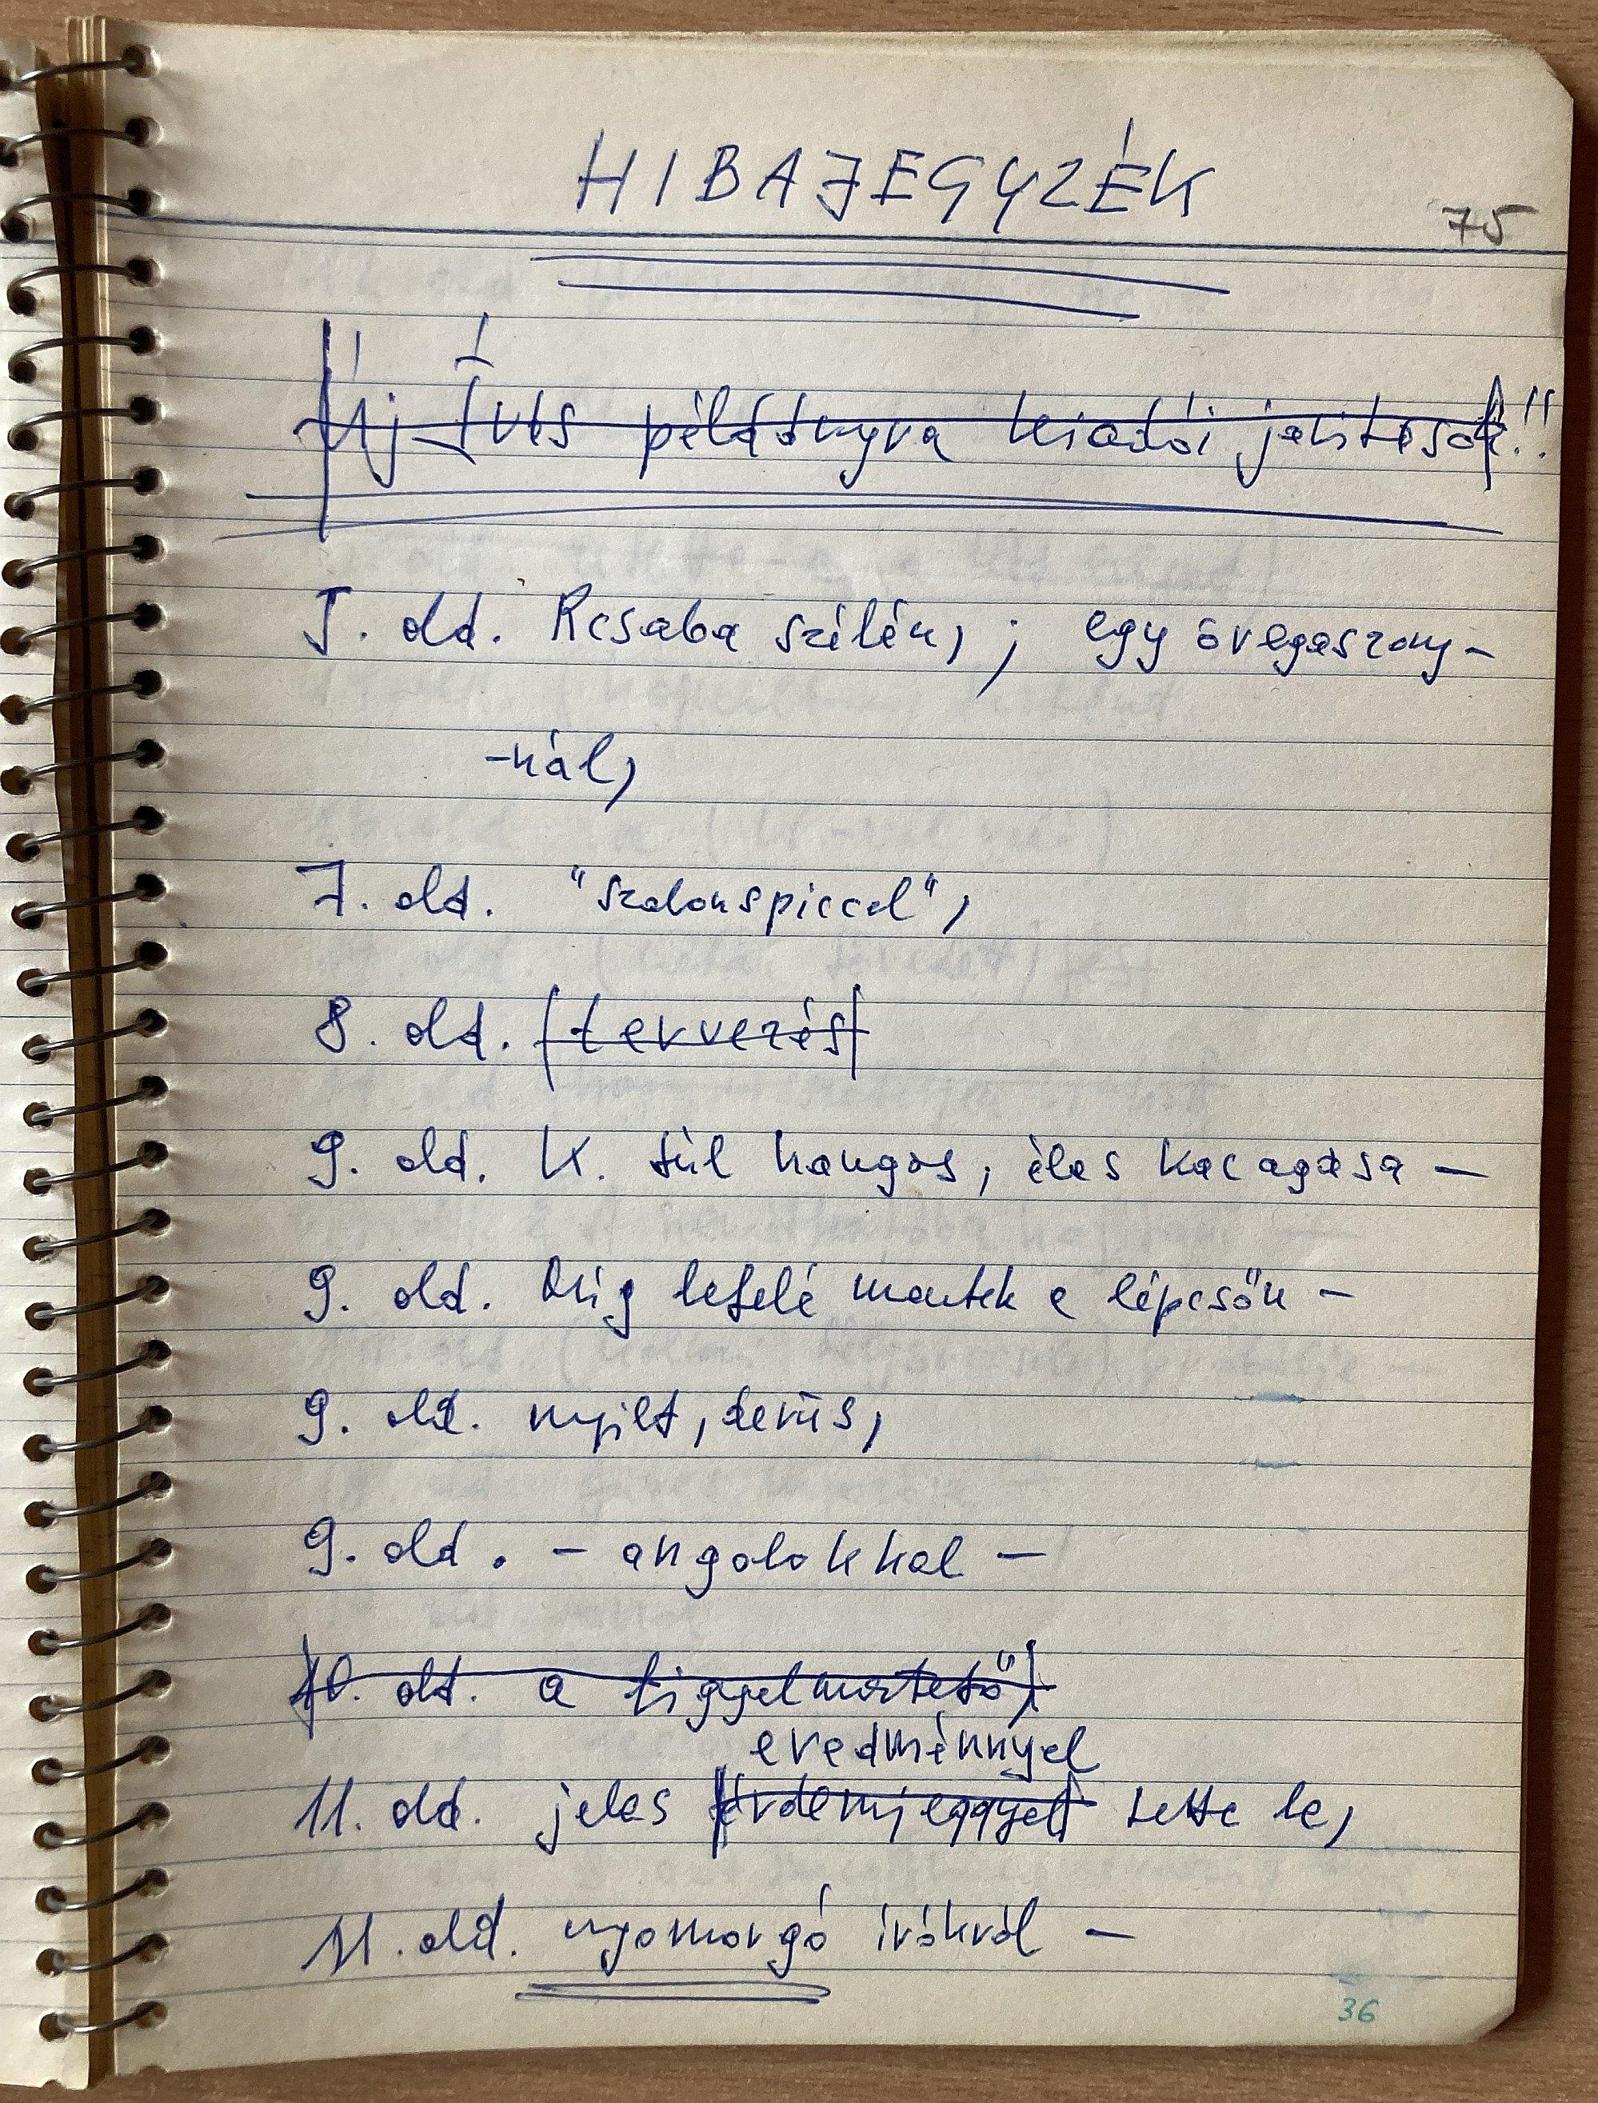 HIBAJEGYZÉK
75
Új Íves példányra kiadói javítások!!
5. old. Rcsaba szélén, ; egy özvegyasszony-
-nál,
7. old. "szalonspiccel",
8. old. tervezés
9. old. K. túl hangos, éles kacagása –
9. old. Míg lefelé mentek a lépcsőn –
9. old. nyílt, derűs,
9. old. – angolokkal –
10. old. a figyelmeztető,
eredménnyel
11. old. jeles érdemjeggyel tette le,
11. old. nyomorgó írókról –
36